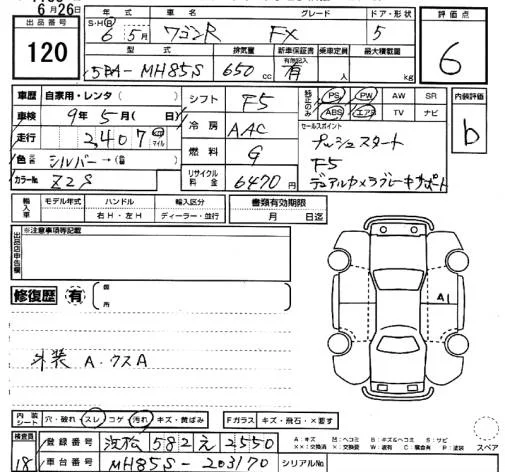 6月26日
出品番号
120
年式 車名 グレード ドア・形状 評価点
S・H・R 6年 5月 ワゴンR FX 5
6
型式 排気量 新車保証書 乗車定員 最大積載量
有効記入
5BA-MH85S 650cc 有 人 kg
車歴 自家用・レンタ( )
車検 9年 5月(日)
走行 2,407 マイル
色 シルバー→( )
カラーNo. Z2S
シフト F5
冷房 AAC
燃料 G
リサイクル料金 6470円
純正のみ PS PW AW SR
ABS エアB TV ナビ
内装評価
b
セールスポイント
プッシュスタート
F5
デュアルカメラブレーキサポート
輸入車 モデル年式 ハンドル 輸入区分 書類有効期限
年 右H・左H ディーラー・並行 月 日迄
出品店申告欄 ※注意事項等記載
修復歴 有 箇所
A1
外装 A.クスA
内装シート 穴・破れ スレ コゲ 汚れ キズ・黄ばみ Fガラス キズ・飛石・×要す
検査員
18
登録番号 浜松 582 え 2550
車台番号 MH85S-203170
シリアルNo.
A:キズ B:キズ&ヘコミ S:サビ
××:交換済 ×:要交換 W:波有 C:腐食有 P:塗装
スペア